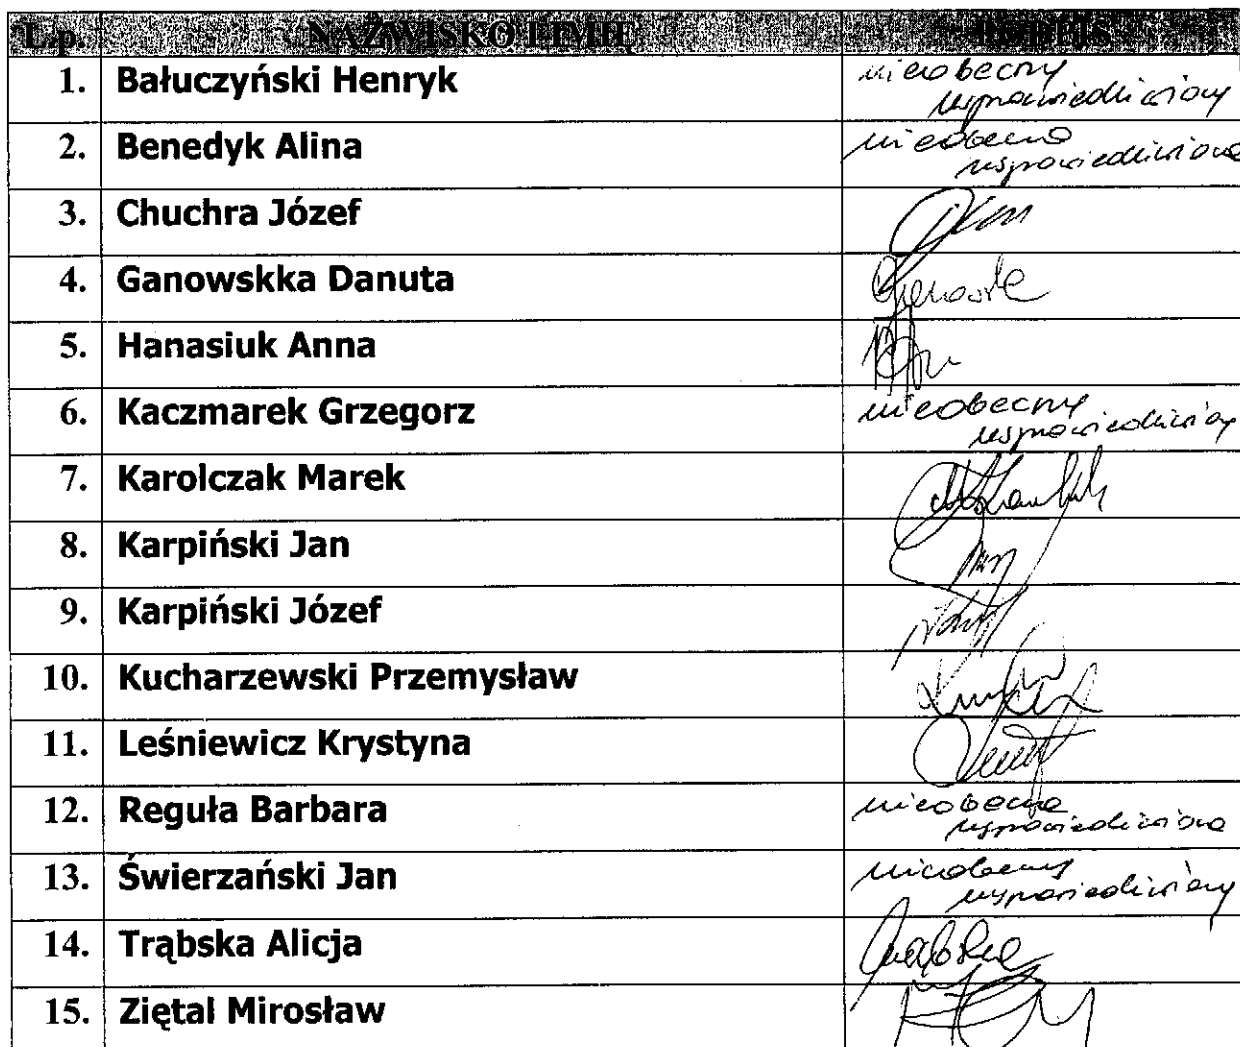 L.p. NAZWISKO I IMIĘ PODPIS
1. Bałuczyński Henryk nieobecny
usprawiedliwiony
2. Benedyk Alina nieobecna
usprawiedliwiona
3. Chuchra Józef
4. Ganowskka Danuta
5. Hanasiuk Anna
6. Kaczmarek Grzegorz nieobecny
usprawiedliwiony
7. Karolczak Marek
8. Karpiński Jan
9. Karpiński Józef
10. Kucharzewski Przemysław
11. Leśniewicz Krystyna
12. Reguła Barbara nieobecna
usprawiedliwiona
13. Świerzański Jan nieobecny
usprawiedliwiony
14. Trąbska Alicja
15. Ziętal Mirosław